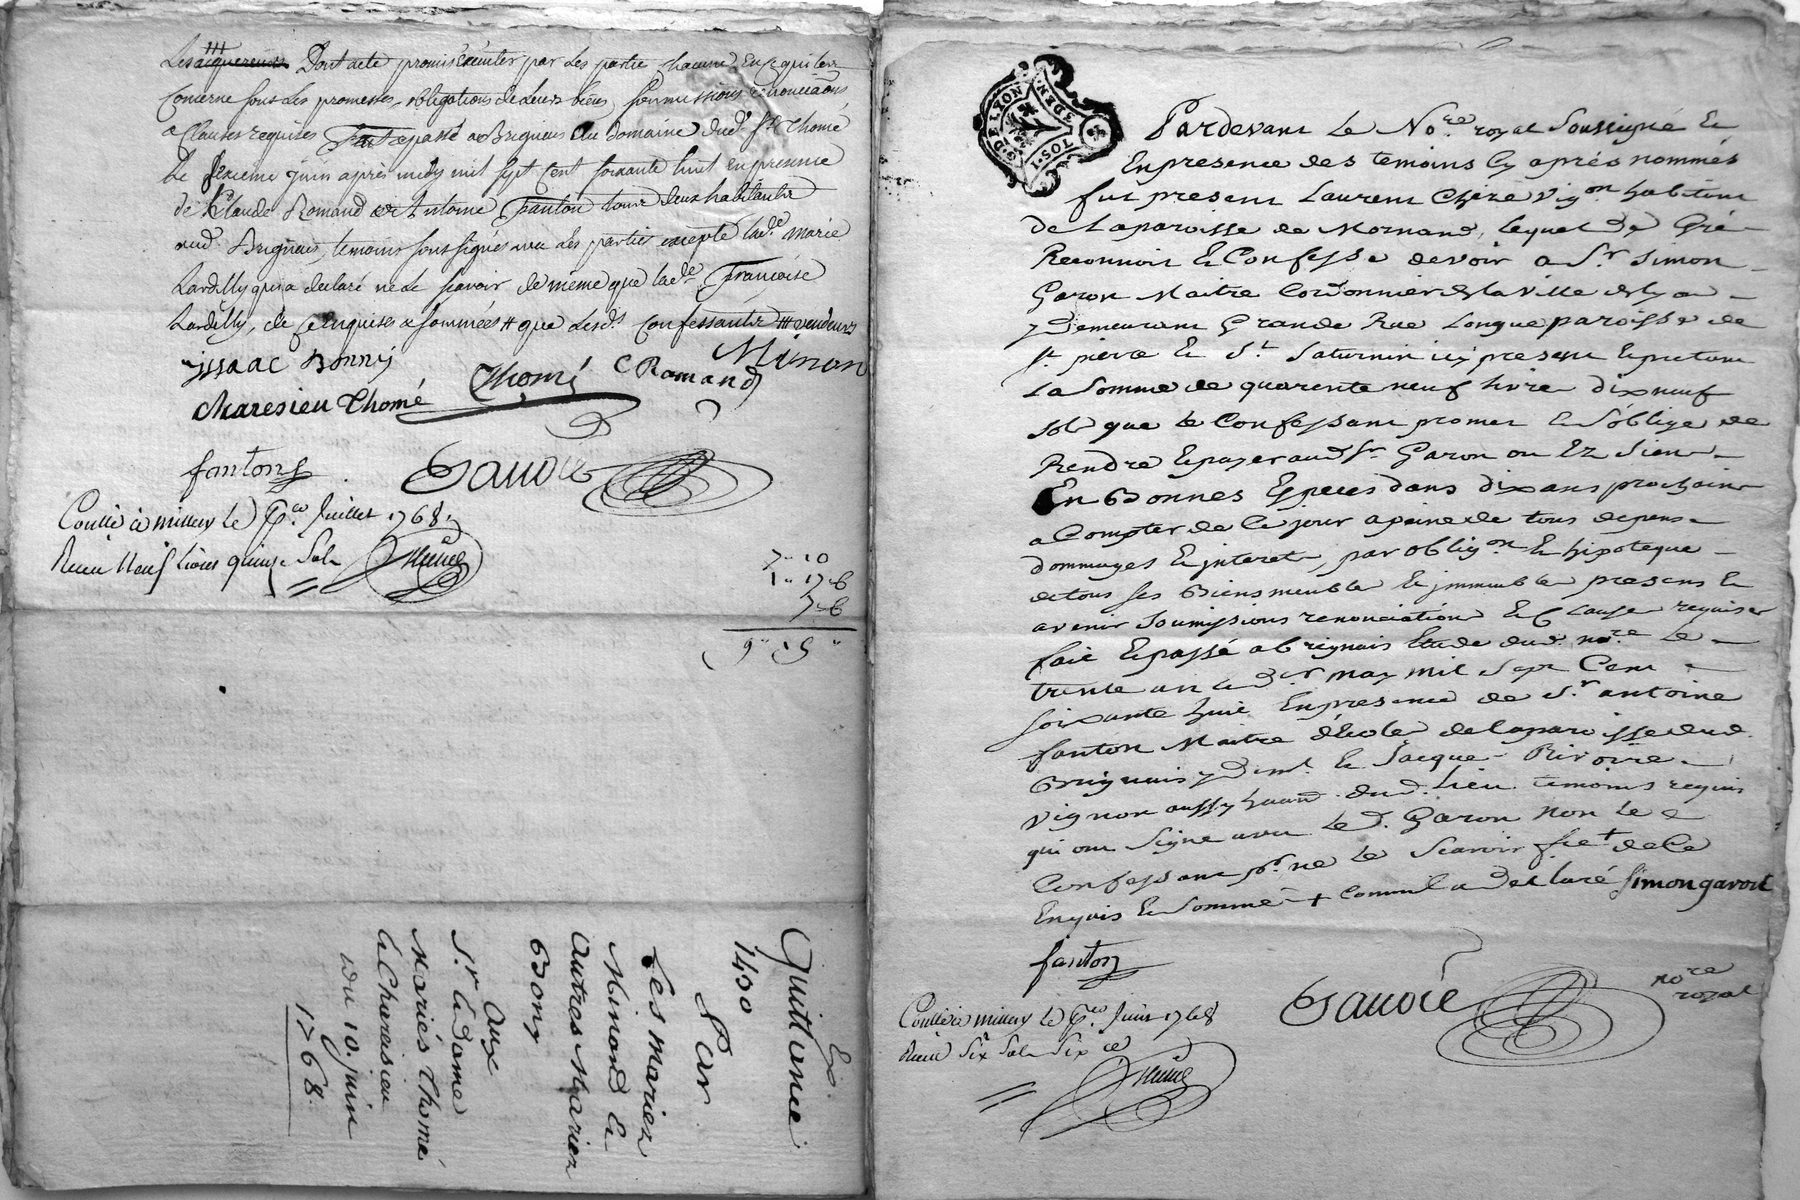 Les acquereurs Dont acte promis executer par les partie chacune En ce qui les
Concerne sous les promesses, obligations de leurs biens, soumissions renonciaons
& Clauses requises fait & passé a Brignais au domaine dud. Sr. Thomé
Le dixieme juin après midy mil sept cent soixante huit en presence
de Claude Romand et Antoine fanton tous deux habitants
aud. Brignais, temoins soussignés avec les parties excepté lad.e marie
Lardilly qui a declaré ne le scavoir de même que lad.e françoise
Lardilly, de ce enquises & sommées # que lesd.s confessants ### vendeurs
issaac Bonny
Minon
Charesieu Thomé
Thomé
C Romand
fantons
Gauvoie
Coullé à millery le Juillet 1768,
Receu Neuf livres quinze Sols
7 " 10
1 " 17 " 6
7 " 6
9 " 15 "
Ex
Quittance
1400
Par
Les mariez
Minond &
autres Mariez
Bony
Aux
S.r & dame
Mariés Thomé
& Cheresieu
du 10. juin
1768.
G. D. LYON
Pardevant le No.re royal soussigné &
En presence des temoins cy aprés nommés
fut present Laurent Chize vig.on habitant
de la paroisse de Mornand, lequel de Gré
Reconnoit & Confesse devoir a S.r simon
Garon Maitre Cordonnier de la ville de Lyon
y demeurant Grande Rue Longue paroisse de
st pierre & S.t Saturnin icy present &
la somme de quarente neuf livre dix neuf
sols que le Confessant promet & s'oblige de
Rendre & payer aud. Sr. Garon ou Ez siens
En Bonnes Especes dans dix ans prochain
a Compter de ce jour a peine de tous depens
dommages & interets, par oblig.on & hipoteque
de tous ses Biens meuble & immeubles presens &
avenir soumissions renonciations & Clause requises
fait & passé a brignais Etude dud. no.re le
trente un may mil sept Cent
soixante huit En presence de S.r antoine
fanton Maitre d'Ecole de la paroisse dud.
Brignais y dem.t & Jacque Rivoire
vignon aussy haand dud. lieu temoins requis
qui ont signé avec led. Garon non le
Confessant p.r ne le scavoir de Ce
Enquis & sommé + comm'il a declaré simon garon
fanton
Gauvoie
no.re
royal
Coullé à millery le Juin 1768
Receu Six Sols Six